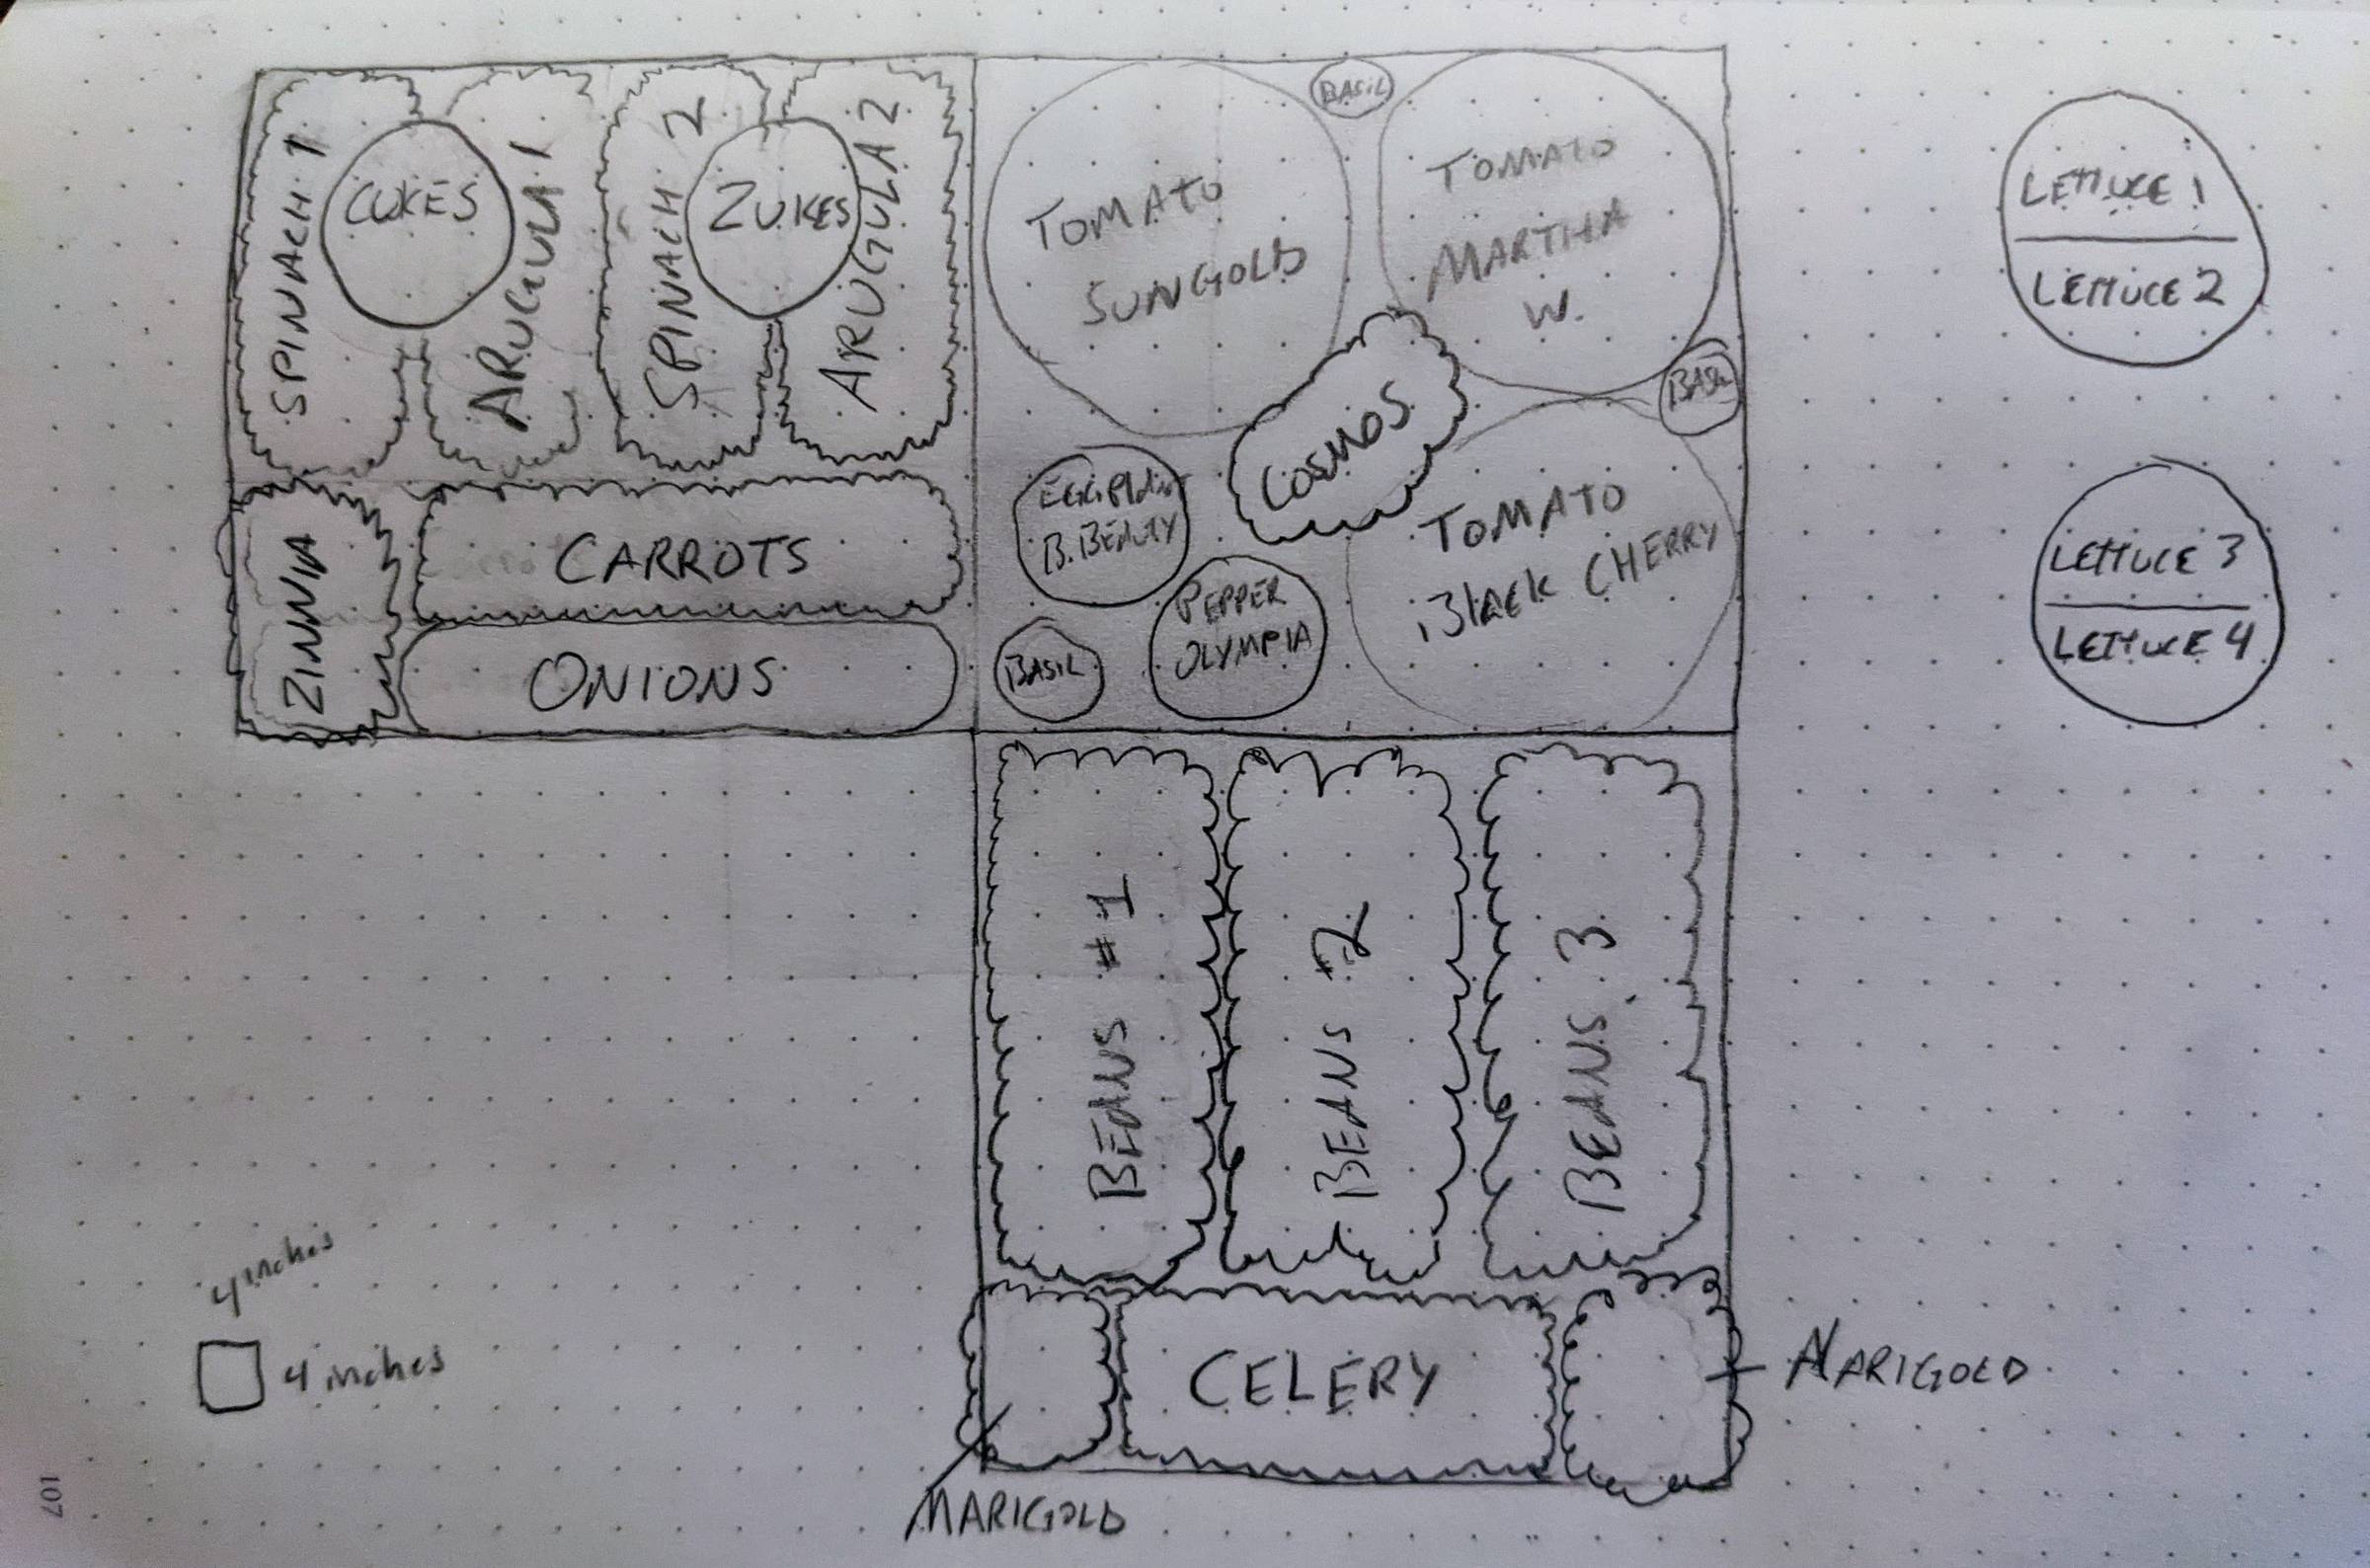 SPINACH 1
CUKES
ARUGULA 1
SPINACH 2
ZUKES
ARUGULA 2
ZINNIA
CARROTS
ONIONS
TOMATO
SUNGOLD
BASIL
TOMATO
MARTHA
W.
BASIL
COSMOS
EGGPLANT
B. BEAUTY
PEPPER
OLYMPIA
BASIL
TOMATO
Black CHERRY
LETTUCE 1
LETTUCE 2
LETTUCE 3
LETTUCE 4
BEANS #1
BEANS 2
BEANS 3
CELERY
MARIGOLD
MARIGOLD
4 inches
4 inches
107